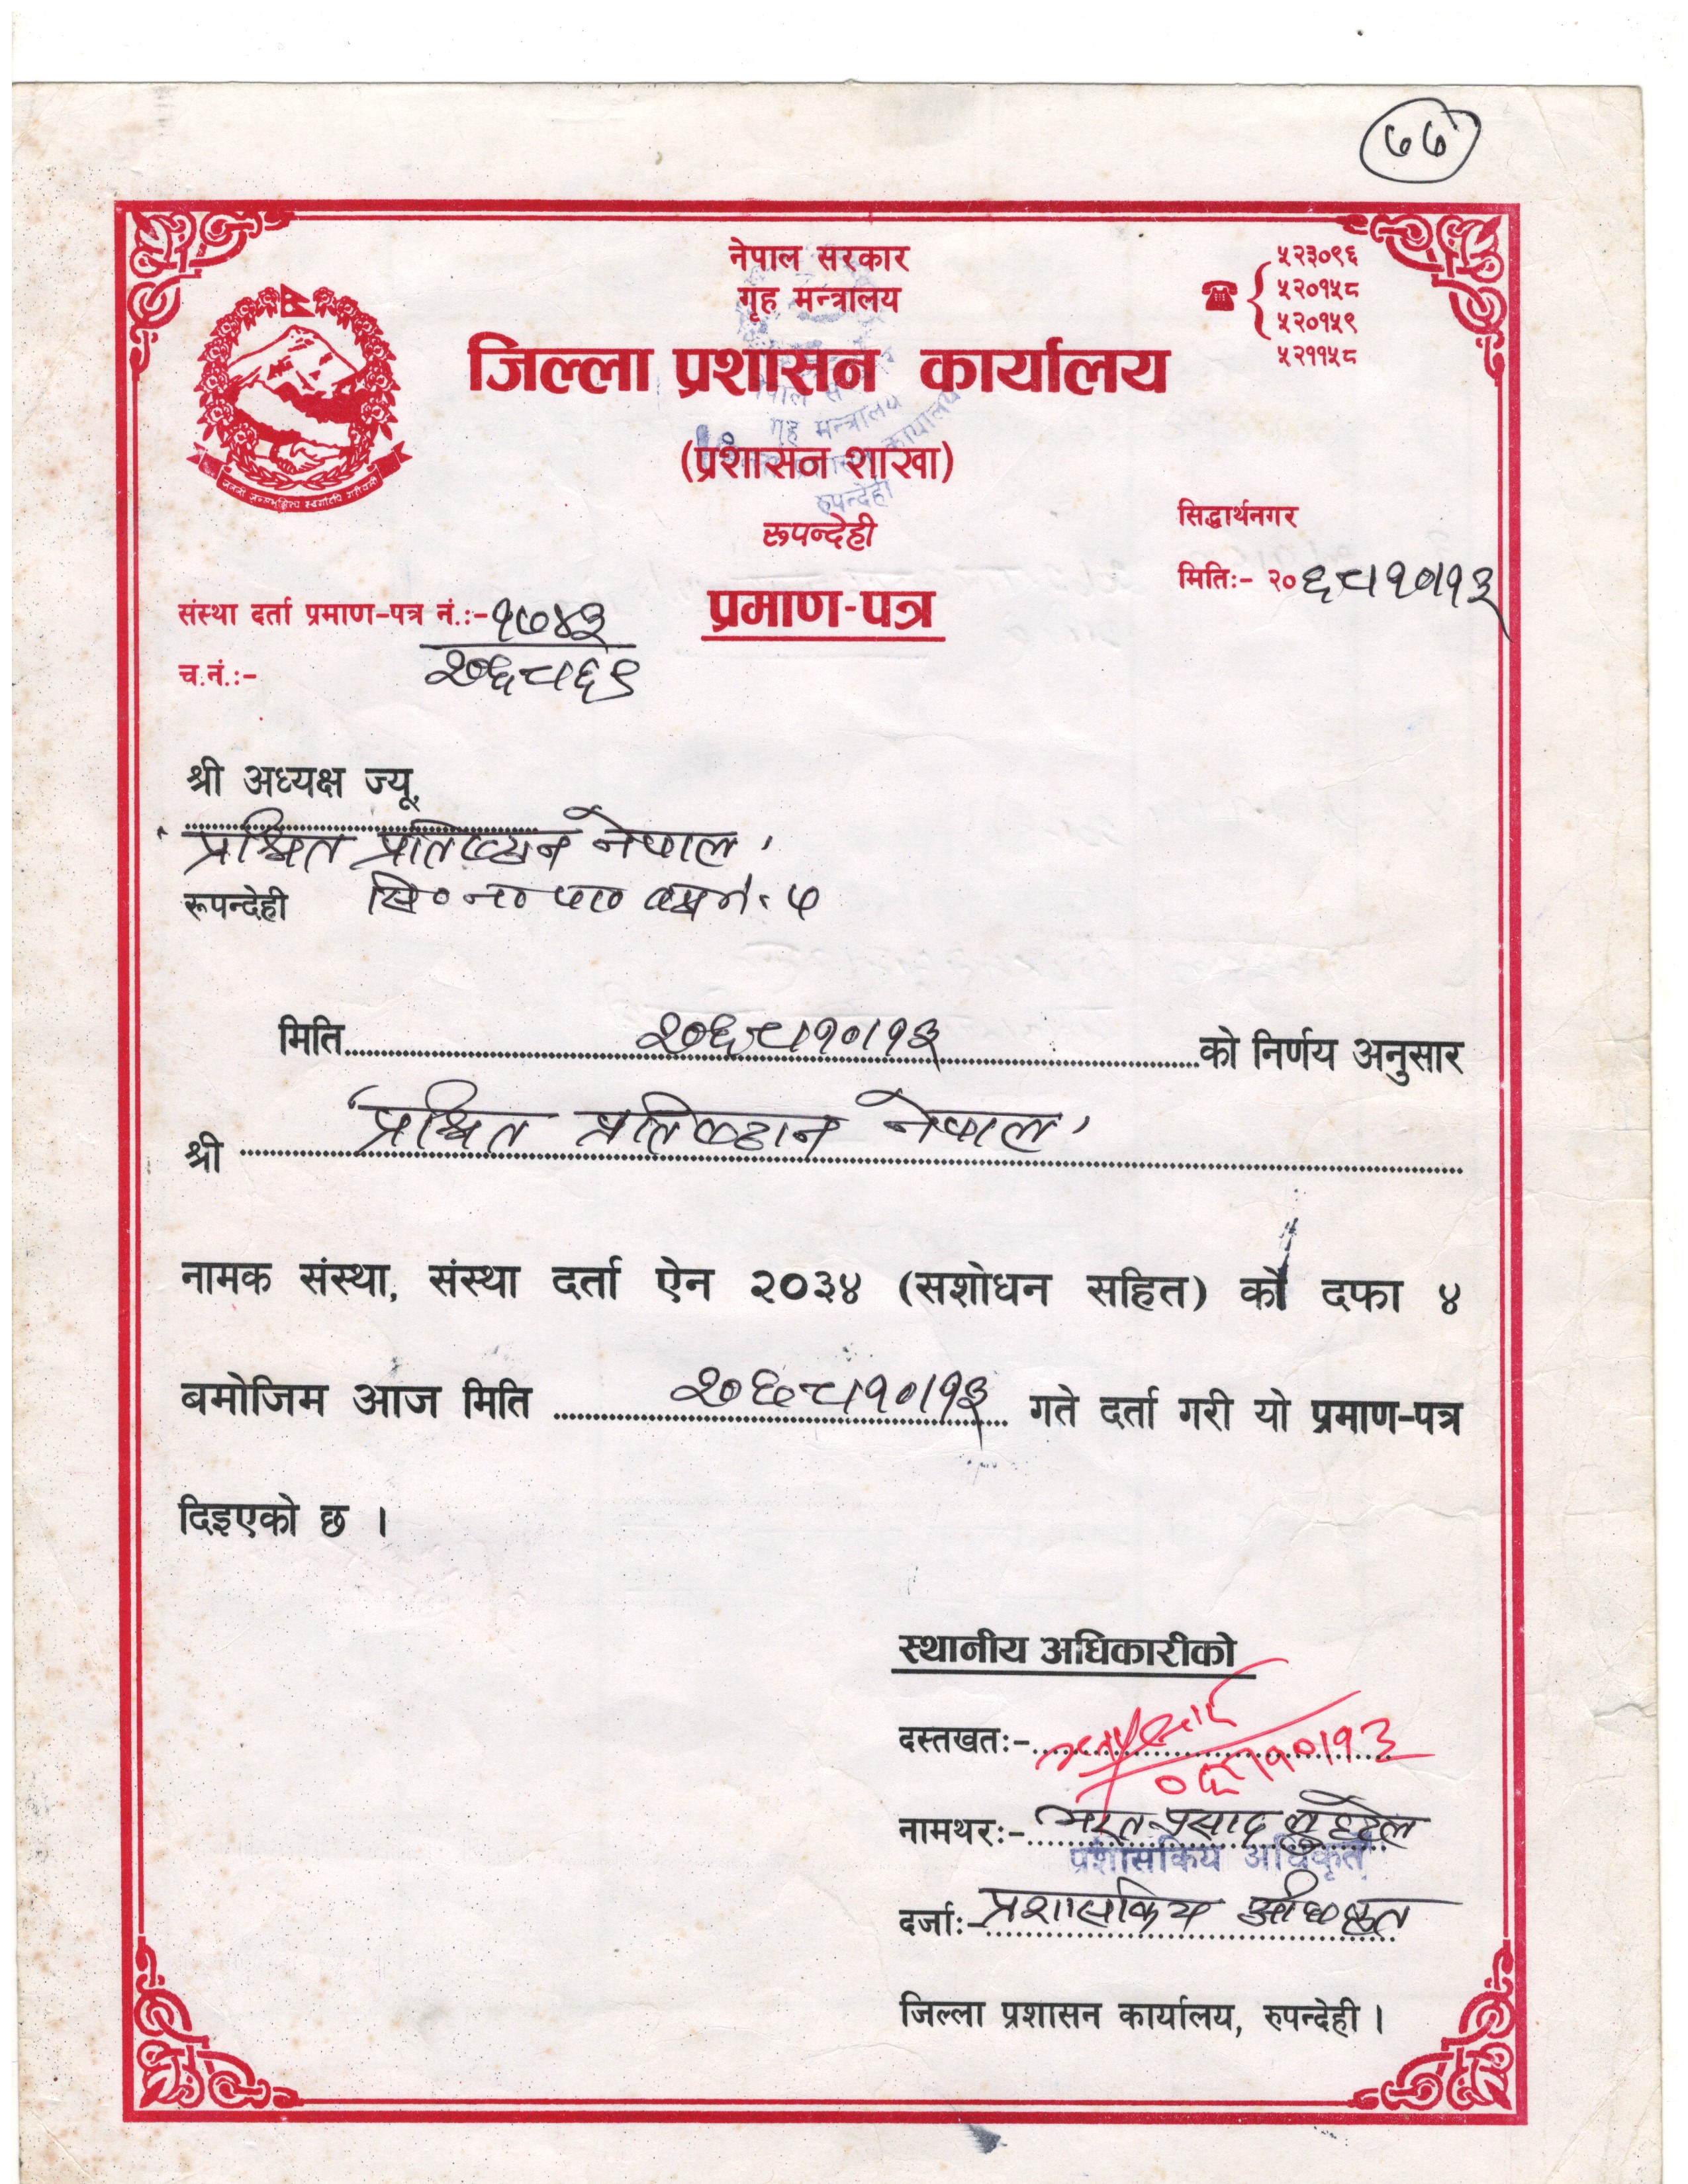 ७७
नेपाल सरकार
गृह मन्त्रालय
जिल्ला प्रशासन कार्यालय
(प्रशासन शाखा)
रूपन्देही
५२३०९६
५२०१५८
५२०१५९
५२११५८
सिद्धार्थनगर
मितिः- २०६८।१०।१३
संस्था दर्ता प्रमाण-पत्र नं.:- १७४३
प्रमाण-पत्र
च.नं.:- २०६८।६९
श्री अध्यक्ष ज्यू,
प्रश्चित प्रतिष्ठान नेपाल,
रूपन्देही सि०न०पा० वडा नं. ५
मिति २०६८।१०।१३ को निर्णय अनुसार
श्री प्रश्चित प्रतिष्ठान नेपाल,
नामक संस्था, संस्था दर्ता ऐन २०३४ (सशोधन सहित) को दफा ४
बमोजिम आज मिति २०६८।१०।१३ गते दर्ता गरी यो प्रमाण-पत्र
दिइएको छ ।
स्थानीय अधिकारीको
दस्तखतः- ०६८।१०।१३
नामथरः- भरत प्रसाद
प्रशासकिय अधिकृत
दर्जाः- प्रशासकिय अधिकृत
जिल्ला प्रशासन कार्यालय, रुपन्देही ।